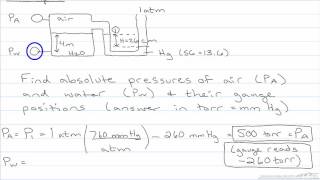 PA
air
1 atm
H=26cm
4m
H2O
PW
Hg (SG=13.6)
Find absolute pressures of air (PA)
and water (PW) & their gauge
positions (answer in torr = mm Hg)
PA = P1 = 1 atm (760 mmHg / atm) - 260 mmHg = 500 torr = PA
(gauge reads
-260 torr)
PW =